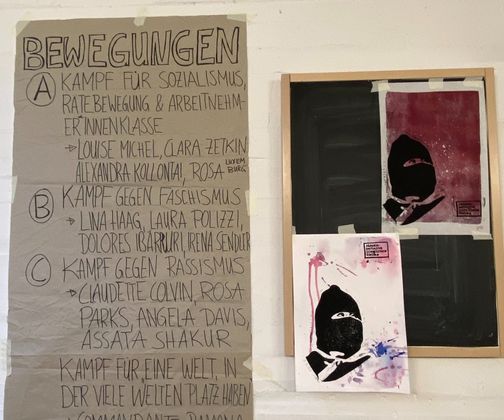 BEWEGUNGEN
A KAMPF FÜR SOZIALISMUS,
RÄTEBEWEGUNG & ARBEITNEHM-
ER*INNENKLASSE
→ LOUISE MICHEL, CLARA ZETKIN
ALEXANDRA KOLLONTAI, ROSA LUXEMBURG
B KAMPF GEGEN FASCHISMUS
→ LINA HAAG, LAURA POLIZZI,
DOLORES IBÁRRURI, IRENA SENDLER
C KAMPF GEGEN RASSISMUS
→ CLAUDETTE COLVIN, ROSA
PARKS, ANGELA DAVIS,
ASSATA SHAKUR
KAMPF FÜR EINE WELT, IN
DER VIELE WELTEN PLATZ HABEN
COMMANDANTE RAMONA